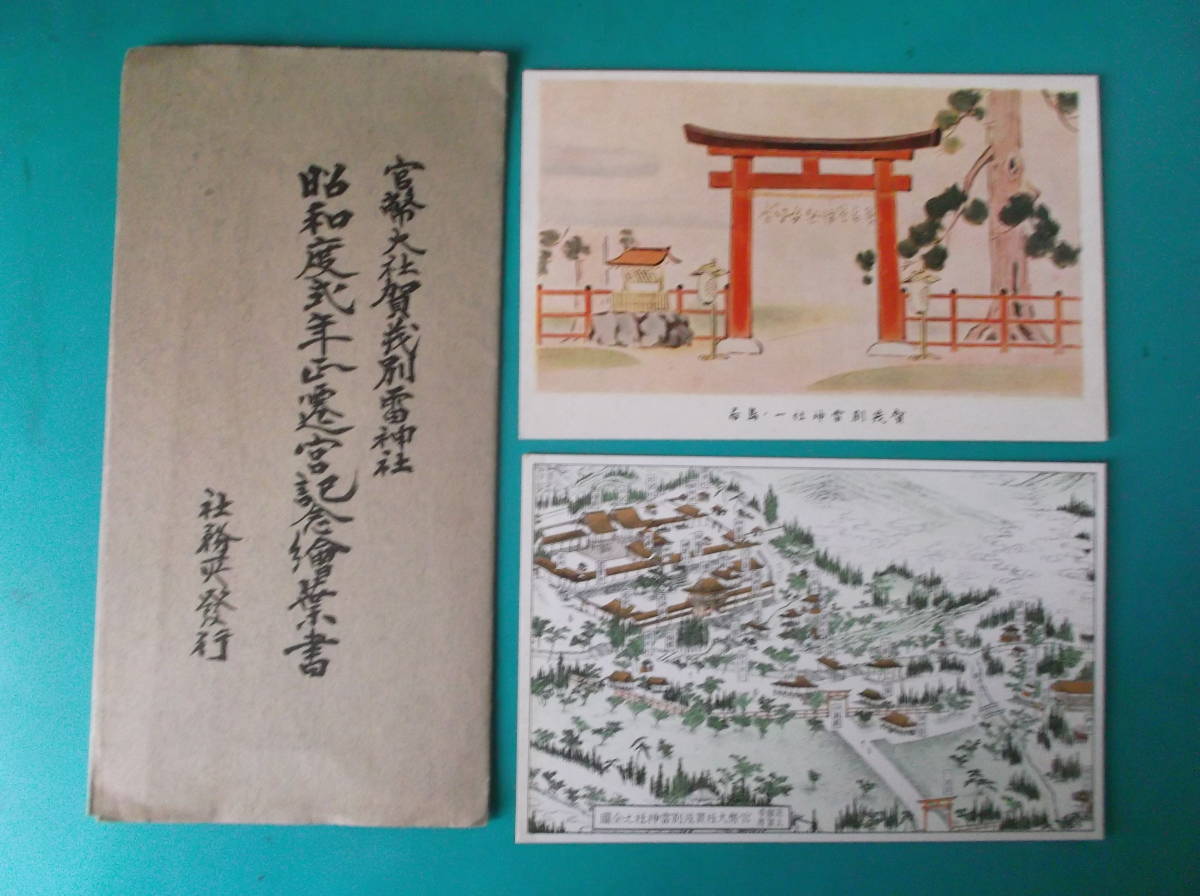 官幣大社賀茂別雷神社
昭和度式年正遷宮記念繪葉書
社務所發行
賀茂別雷神社一ノ鳥居
官幣大社賀茂別雷神社之全圖